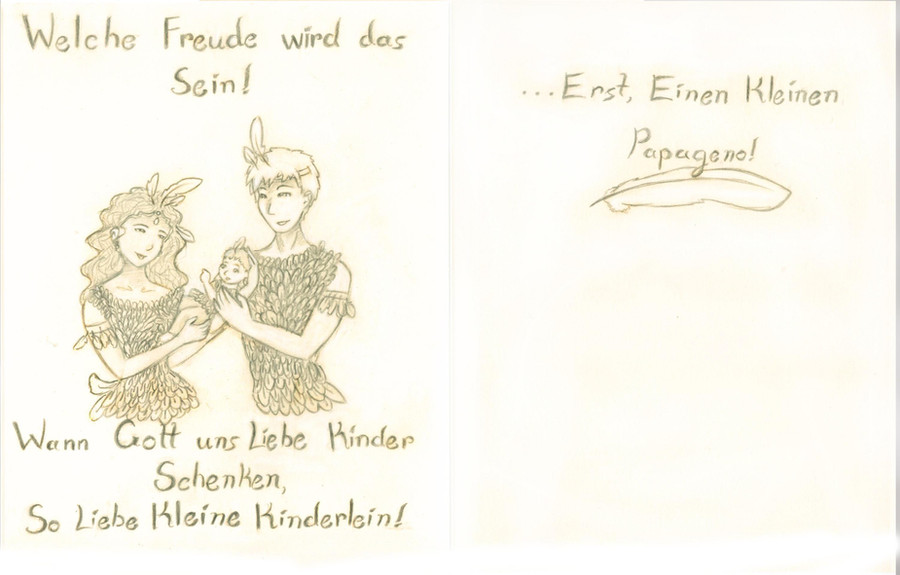 Welche Freude wird das
Sein!
Wann Gott uns Liebe Kinder
Schenken,
So Liebe Kleine Kinderlein!
...Erst, Einen Kleinen
Papageno!